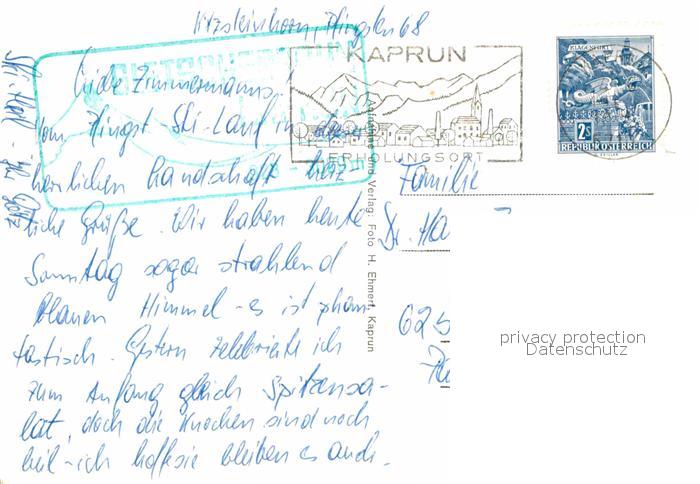 Kitzsteinhorn, Pfingsten 68
Liebe Zimmermanns!
vom Pfingst-Ski-Land in der
herrlichen Landschaft - herz-
liche Grüße. Wir haben heute
Sonntag sogar strahlend
blauen Himmel - es ist phan-
tastisch. Gestern zelebrierte ich
zum Anfang gleich Spitzensa-
lat, doch die Knochen sind noch
heil - ich hoffe sie bleiben es auch.
Ski-Heil - Ihr
KAPRUN
ERHOLUNGSORT
KLAGENFURT
2S
REPUBLIK ÖSTERREICH
Aufnahme und Verlag: Foto H. Ehmert, Kaprun
Familie
Dr. Ha
625
privacy protection
Datenschutz